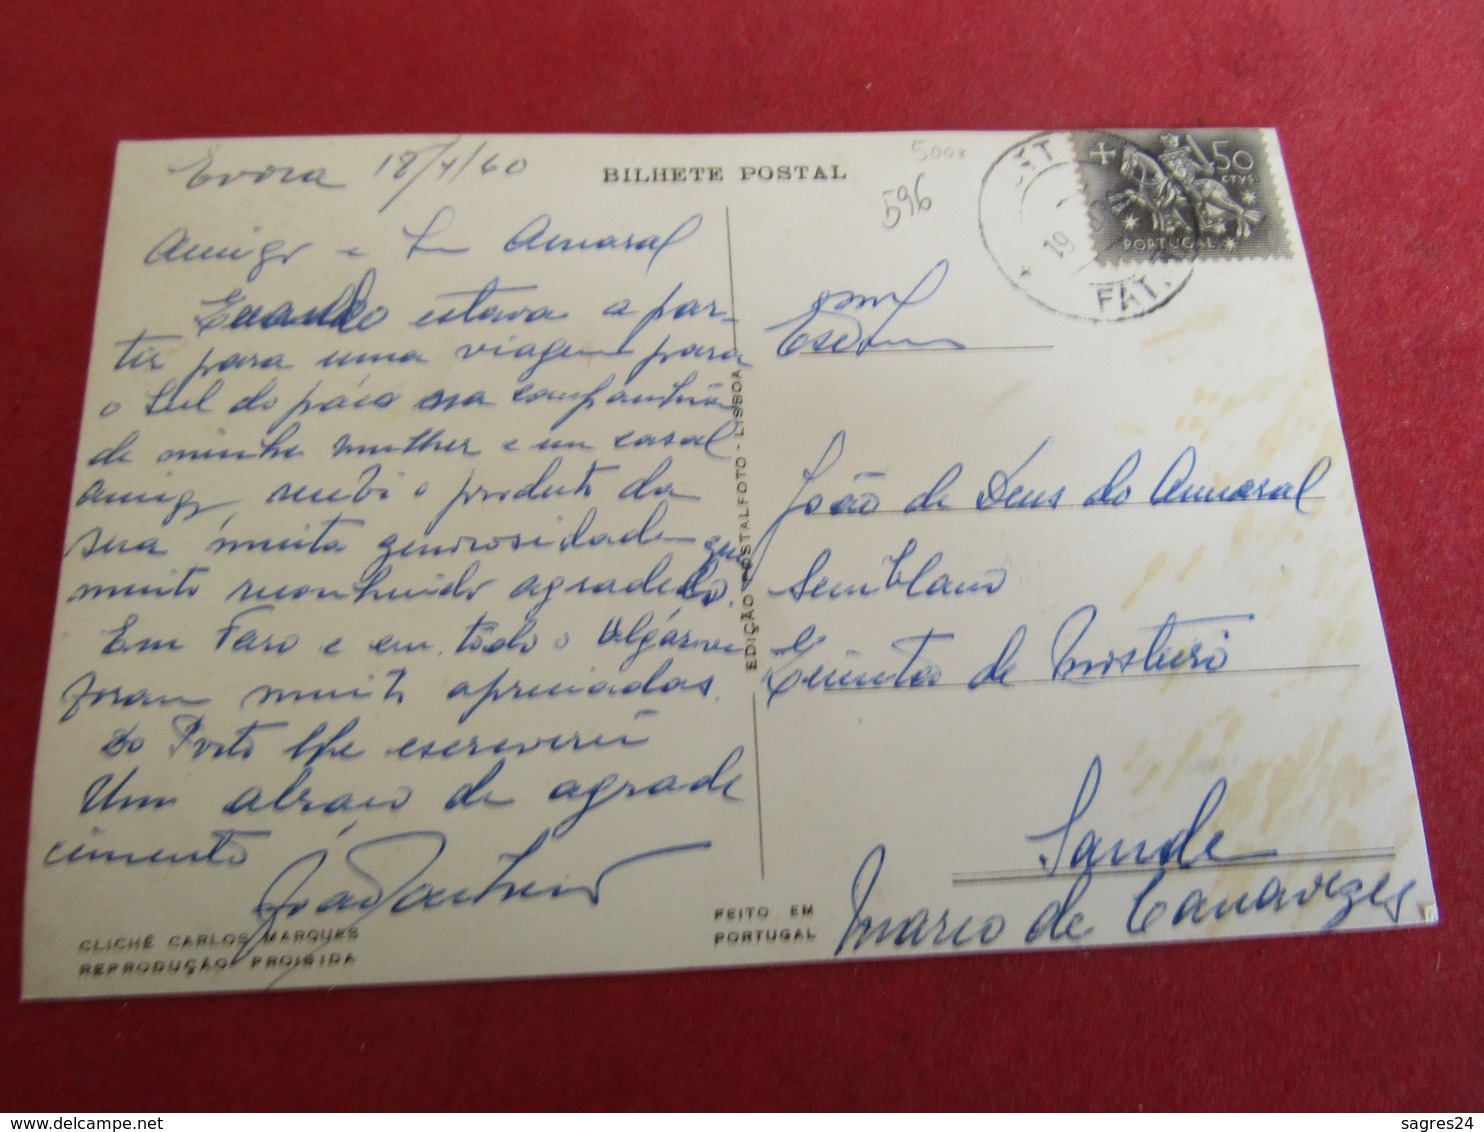 Evora 18/4/60
BILHETE POSTAL
500x
596
1$50
CTVS.
PORTUGAL
19
FAT.
Amigo e Sr Amaral
Quando estava a par-
tir para uma viagem para
o Sul do páis na companhia
de minha mulher e um casal
amigo, recebi o produto da
sua muita generosidade que
muito reconhecido agradeço.
Em Faro e em todo o Algarve
foram muito apreciadas.
Do Porto lhe escreverei
Um abraço de agrade
cimento
João
CLICHÉ CARLOS MARQUES
REPRODUÇÃO PROIBIDA
EDIÇÃO POSTALFOTO - LISBOA
FEITO EM
PORTUGAL
Exmo
João de Deus do Amaral
Semblano
Quinta de Mosteiro
Sande
Marco de Canavezes
sagres24